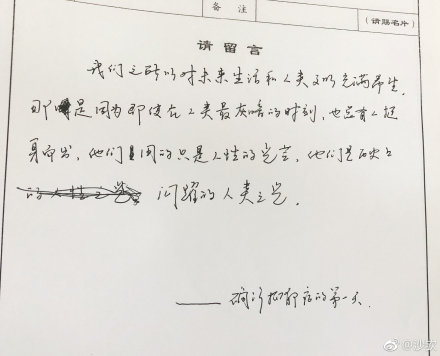 备 注
（请赐名片）
请留言
我们之所以对未来生活和人类文明充满希望,
那是因为即使在人类最灰暗的时刻,也总有人挺
身而出,他们用的只是人性的光芒,他们是历史上
闪耀的人类之光.
——确诊抑郁症的第一天.